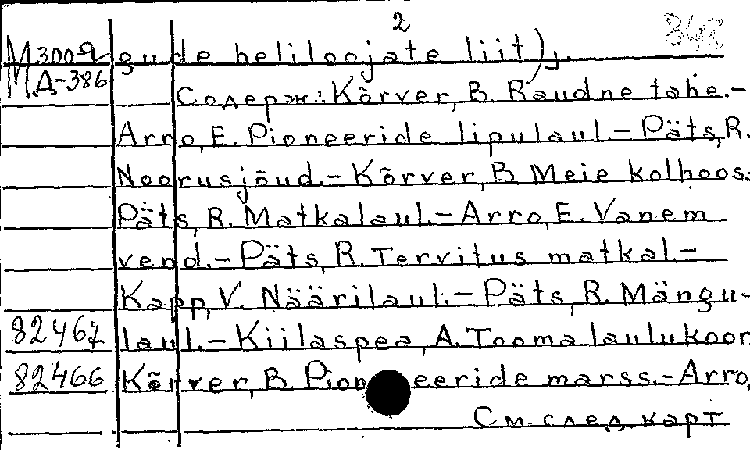 2
М 3009 gude heliloojate liit).
МД-386
Содерж.: Kõrver, B. Raudne tahe.-
Arro, E. Pioneeride lipulaul.- Päts, R.
Noorusjõud.- Kõrver, B. Meie kolhoos.-
Päts, R. Matkalaul.- Arro, E. Vanem
vend.- Päts, R. Tervitus matkal.-
Kapp, V. Näärilaul.- Päts, R. Mängu-
82467 laul.- Kiilaspea, A. Tooma laulukoor
82466 Kõrver, B. Pioneeride marss.- Arro,
См. след. карт